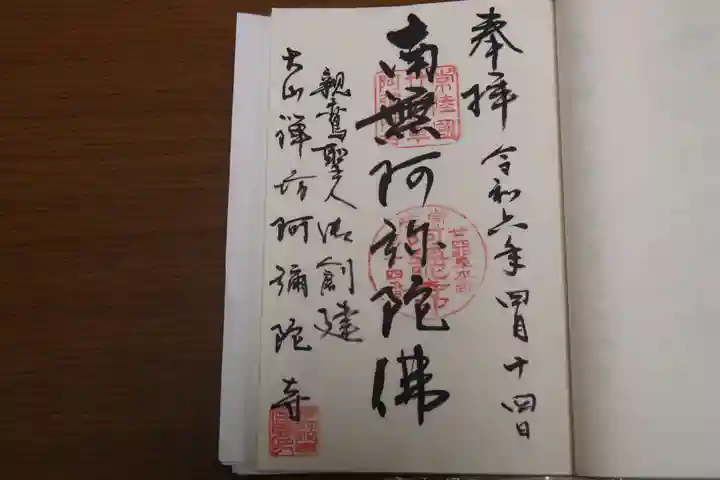 奉拝 令和六年 四月十四日
南無阿弥陀佛
親鸞聖人御創建
大山禅坊阿彌陀寺